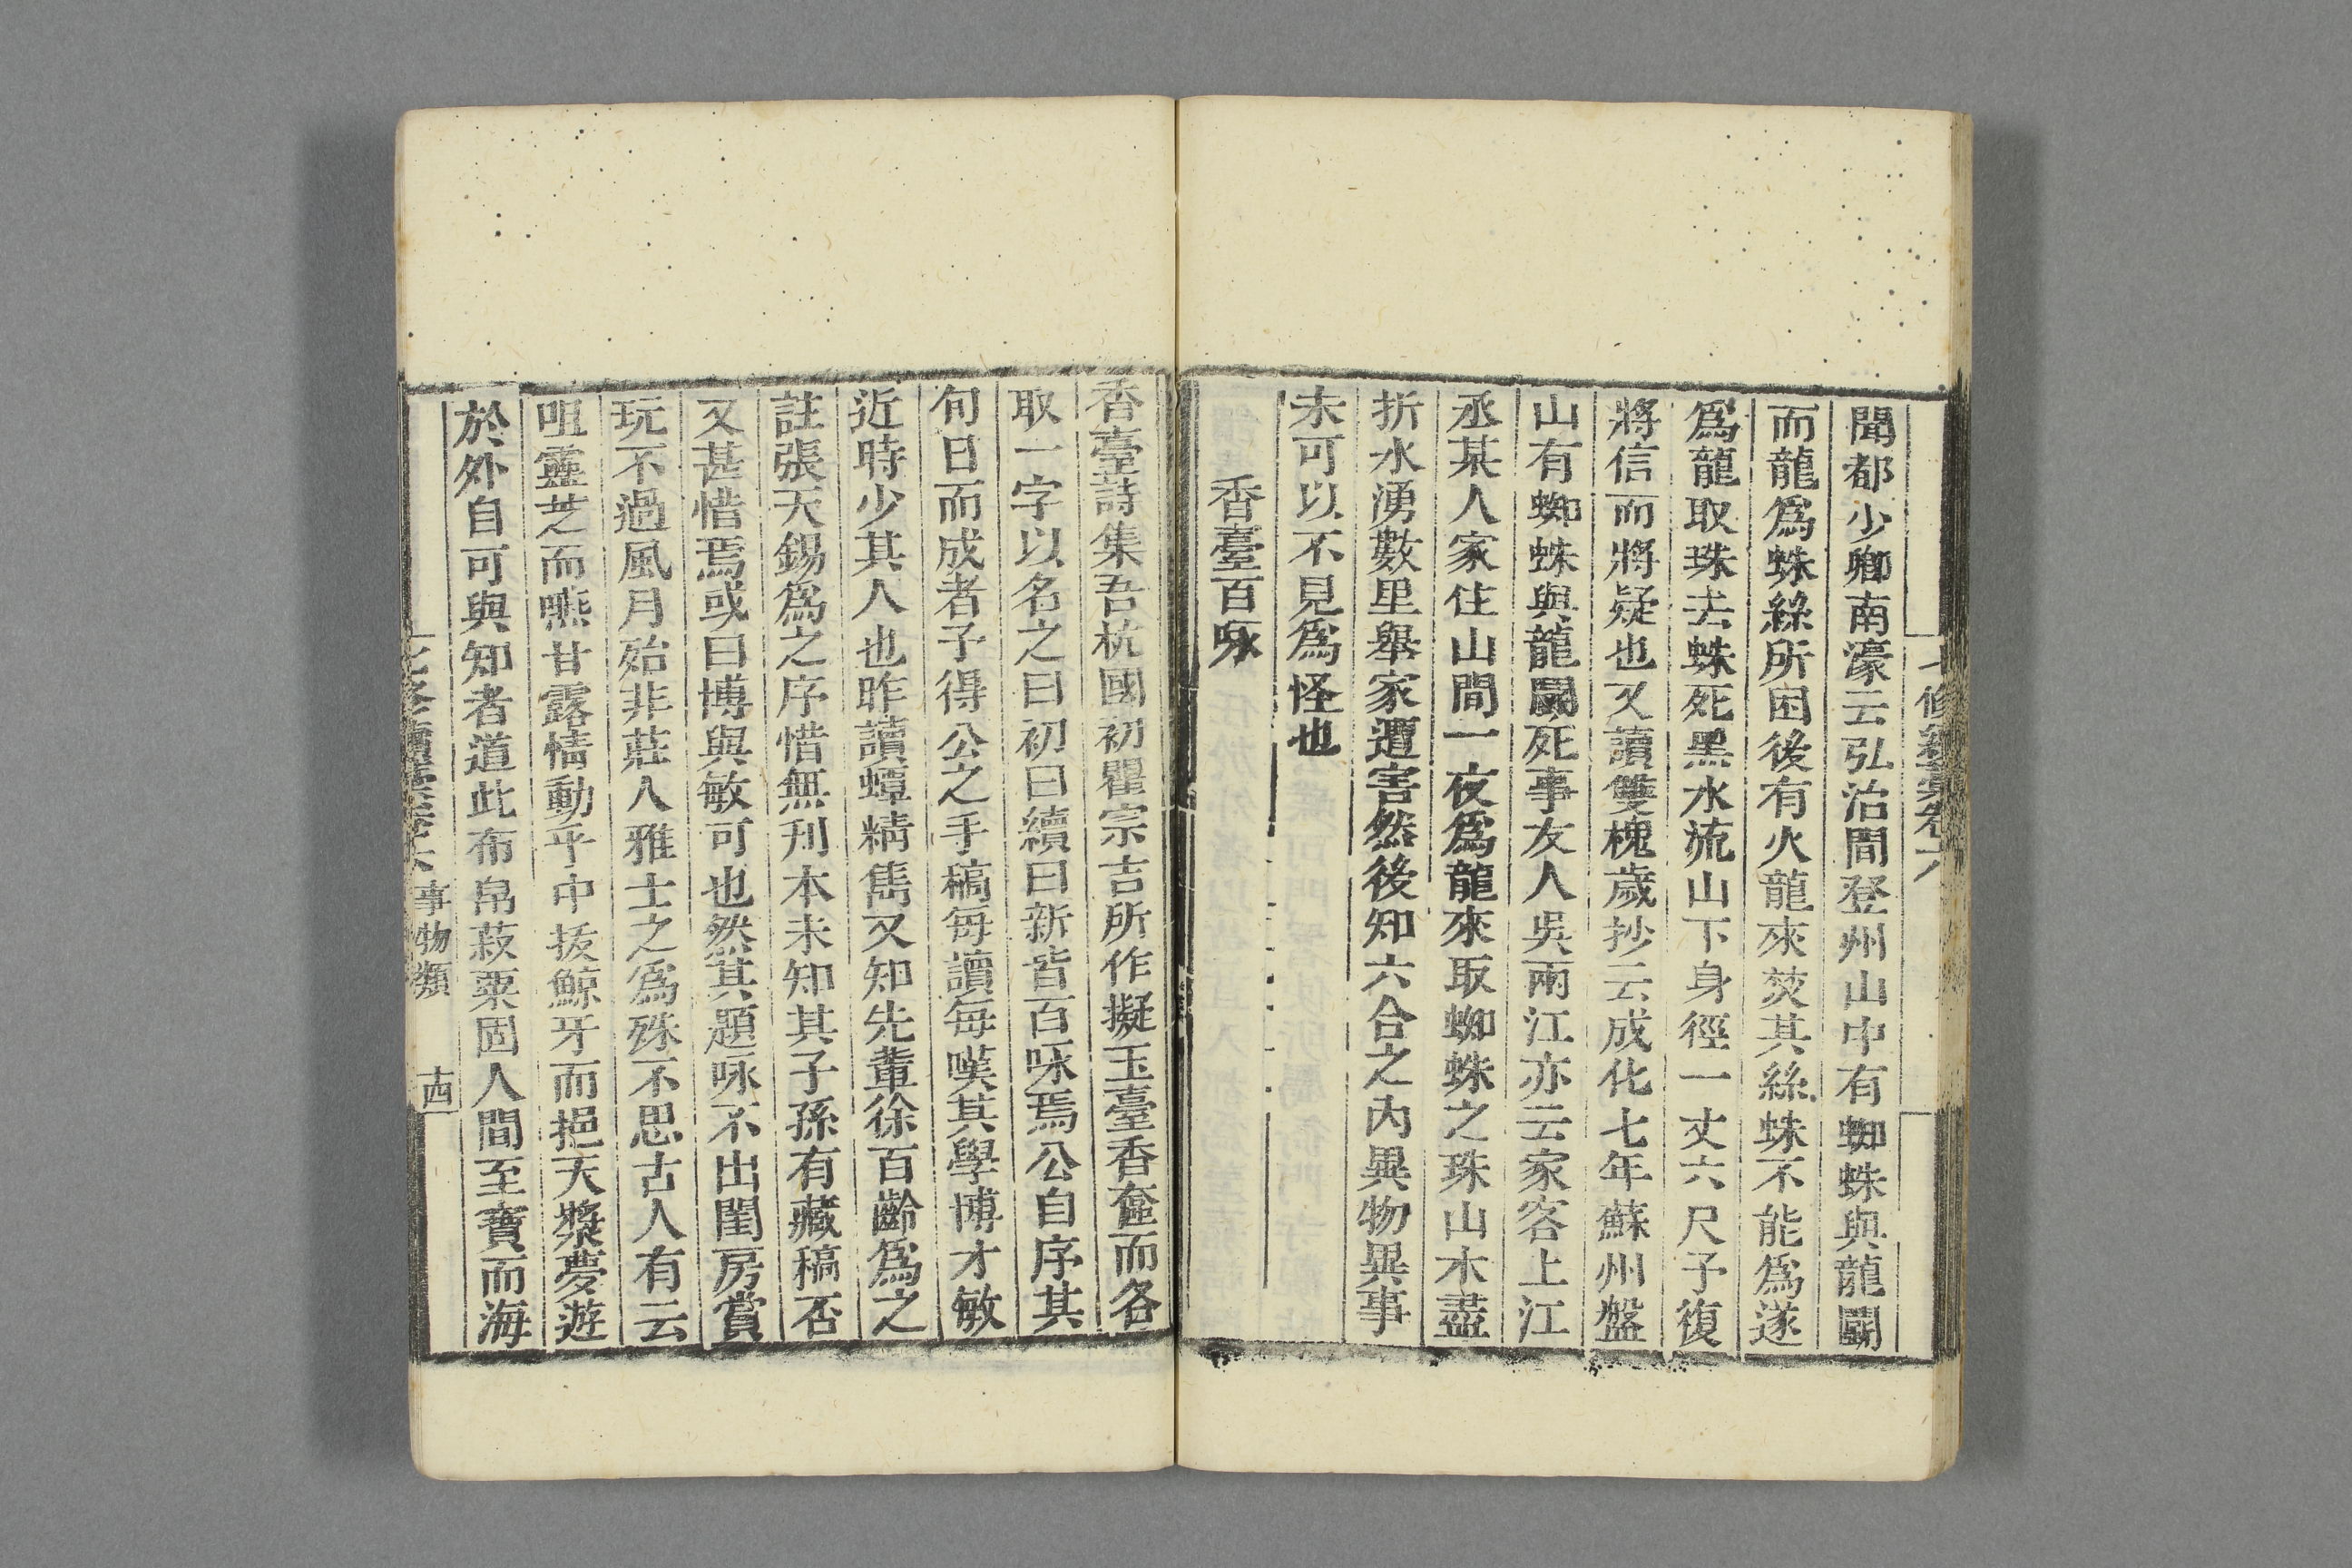 七修續藁卷六
聞都少卿南濠云弘治間登州山中有蜘蛛與龍鬬
而龍爲蛛絲所困後有火龍來焚其絲蛛不能爲遂
爲龍取珠去蛛死黑水流山下身徑一丈六尺予復
將信而將疑也又讀雙槐歲抄云成化七年蘇州盤
山有蜘蛛與龍鬬死事友人吳兩江亦云家客上江
丞某人家住山間一夜爲龍來取蜘蛛之珠山木盡
折水湧數里舉家遭害然後知六合之內異物異事
未可以不見爲怪也
香臺百咏
香臺詩集吾杭國初瞿宗吉所作擬玉臺香奩而各
取一字以名之曰初曰續曰新皆百咏焉公自序其
旬日而成者予得公之手稿每讀每嘆其學博才敏
近時少其人也昨讀蟫精雋又知先輩徐百齡爲之
註張天錫爲之序惜無刋本未知其子孫有藏稿否
又甚惜焉或曰博與敏可也然其題咏不出閨房賞
玩不過風月殆非莊人雅士之爲殊不思古人有云
咀靈芝而嚥甘露情動乎中拔鯨牙而挹天漿夢遊
於外自可與知者道此布帛菽粟固人間至寶而海
七修續藁卷六 事物類 十四